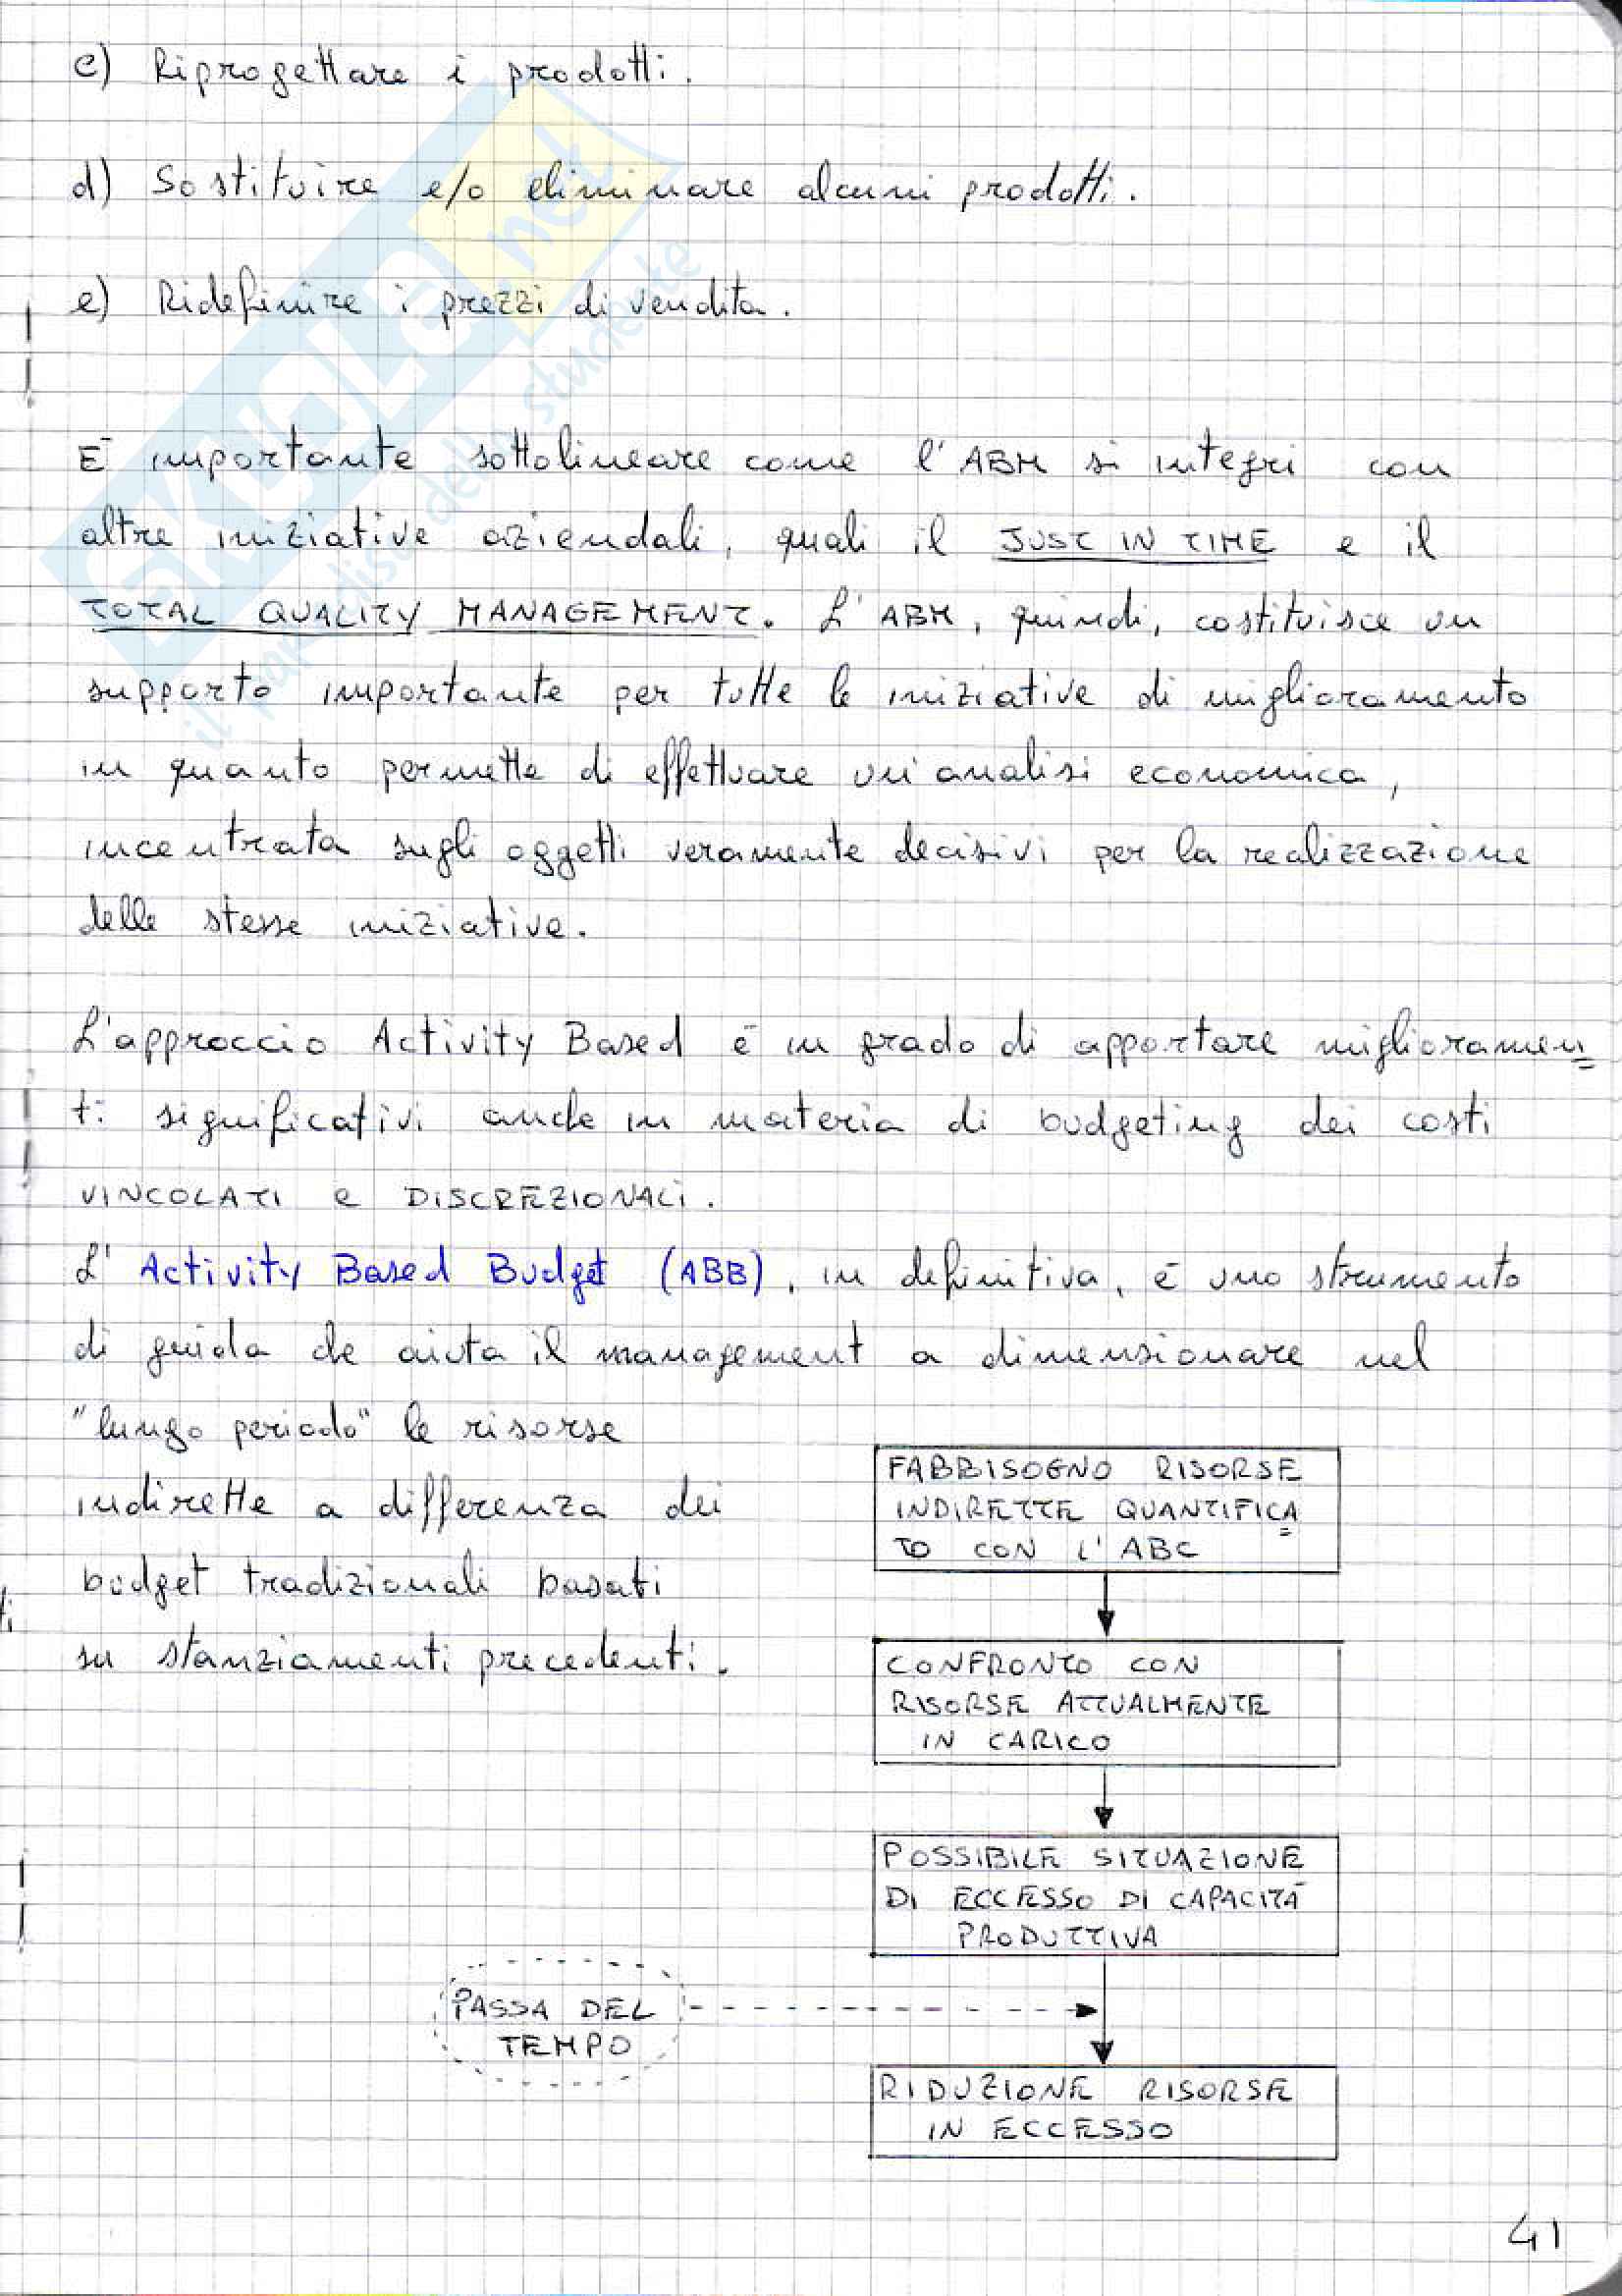 c) Riprogettare i prodotti.
d) Sostituire e/o eliminare alcuni prodotti.
e) Ridefinire i prezzi di vendita.
È importante sottolineare come l'ABM si integri con
altre iniziative aziendali, quali il JUST IN TIME e il
TOTAL QUALITY MANAGEMENT. L'ABM, quindi, costituisce un
supporto importante per tutte le iniziative di miglioramento
in quanto permette di effettuare un'analisi economica,
incentrata sugli oggetti veramente decisivi per la realizzazione
delle stesse iniziative.
L'approccio Activity Based è in grado di apportare miglioramen
ti significativi anche in materia di budgeting dei costi
VINCOLATI e DISCREZIONALI.
L'Activity Based Budget (ABB), in definitiva, è uno strumento
di guida che aiuta il management a dimensionare nel
"lungo periodo" le risorse
indirette a differenza dei
budget tradizionali basati
su stanziamenti precedenti.
FABBISOGNO RISORSE
INDIRETTE QUANTIFICA
TO CON L'ABC
CONFRONTO CON
RISORSE ATTUALMENTE
IN CARICO
POSSIBILE SITUAZIONE
DI ECCESSO DI CAPACITÀ
PRODUTTIVA
PASSA DEL
TEMPO
RIDUZIONE RISORSE
IN ECCESSO
41
SKUOLA.net
il paradiso dello studente